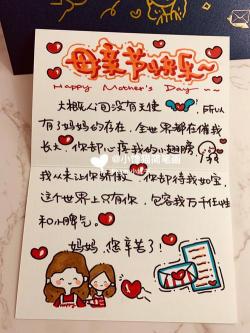 母亲节快乐~
Happy Mother's Day ~~
大概人间没有天使，所以
有了妈妈的存在，全世界都在催我
长大，你却心疼我的小翅膀
@小馋猫简笔画
我从未让你骄傲，你却待我如宝，
这个世界上只有你，包容我万千任性
和小脾气。
妈妈，您辛苦了！